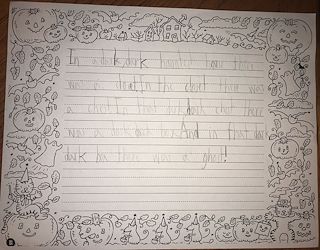 In a dark dark haunted house there
was a closet In the closet there was
a chest. In that dark chest there
was a dark dark box And in that dark
dark box there was a ghost!